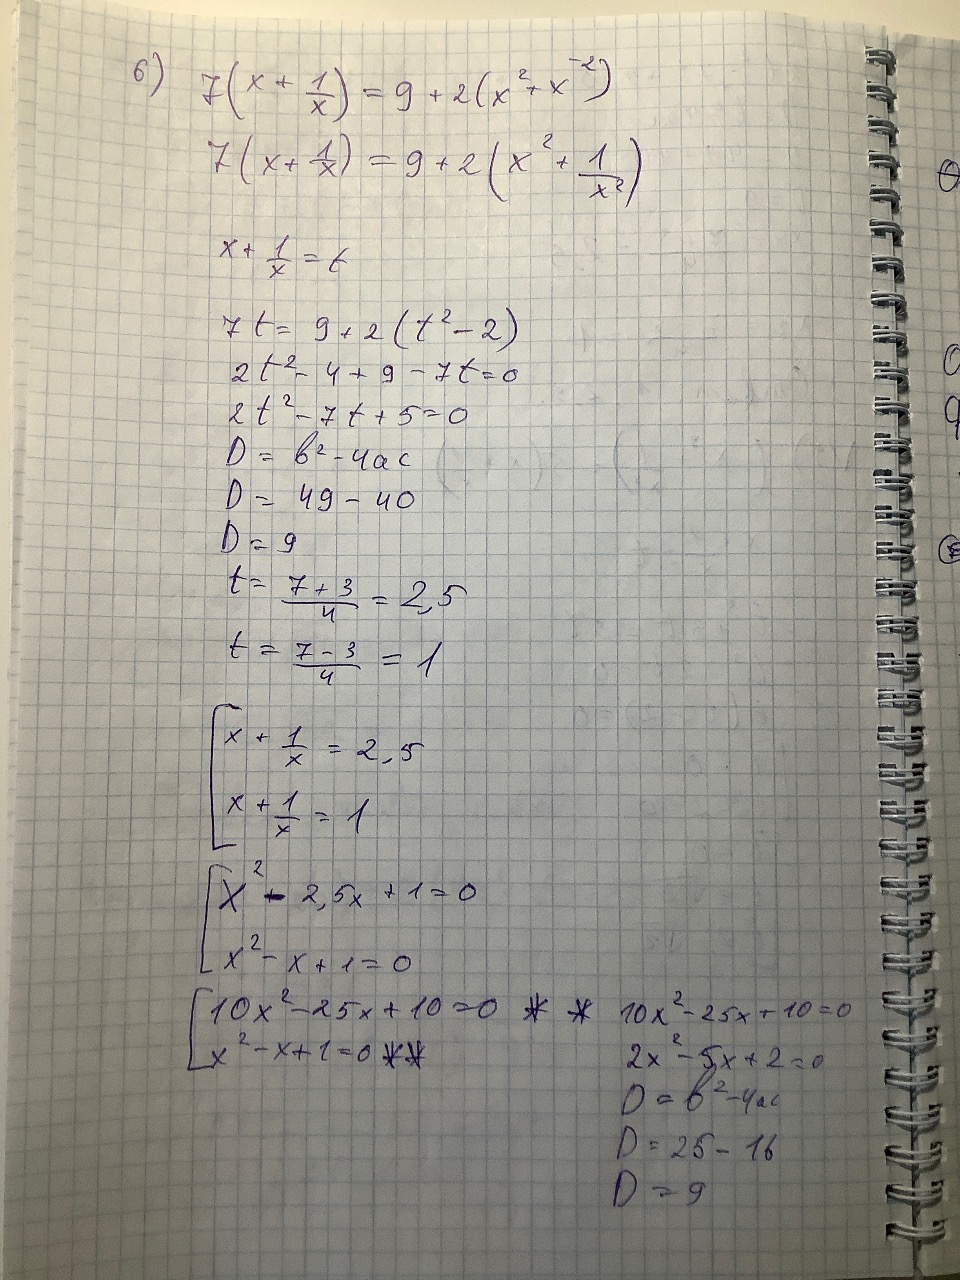 б) 7(x + 1/x) = 9 + 2(x² + x⁻²)
7(x + 1/x) = 9 + 2(x² + 1/x²)
x + 1/x = t
7t = 9 + 2(t² - 2)
2t² - 4 + 9 - 7t = 0
2t² - 7t + 5 = 0
D = b² - 4ac
D = 49 - 40
D = 9
t = (7 + 3)/4 = 2,5
t = (7 - 3)/4 = 1
[ x + 1/x = 2,5
x + 1/x = 1
[ x² - 2,5x + 1 = 0
x² - x + 1 = 0
[ 10x² - 25x + 10 = 0 *
x² - x + 1 = 0 **
* 10x² - 25x + 10 = 0
2x² - 5x + 2 = 0
D = b² - 4ac
D = 25 - 16
D = 9